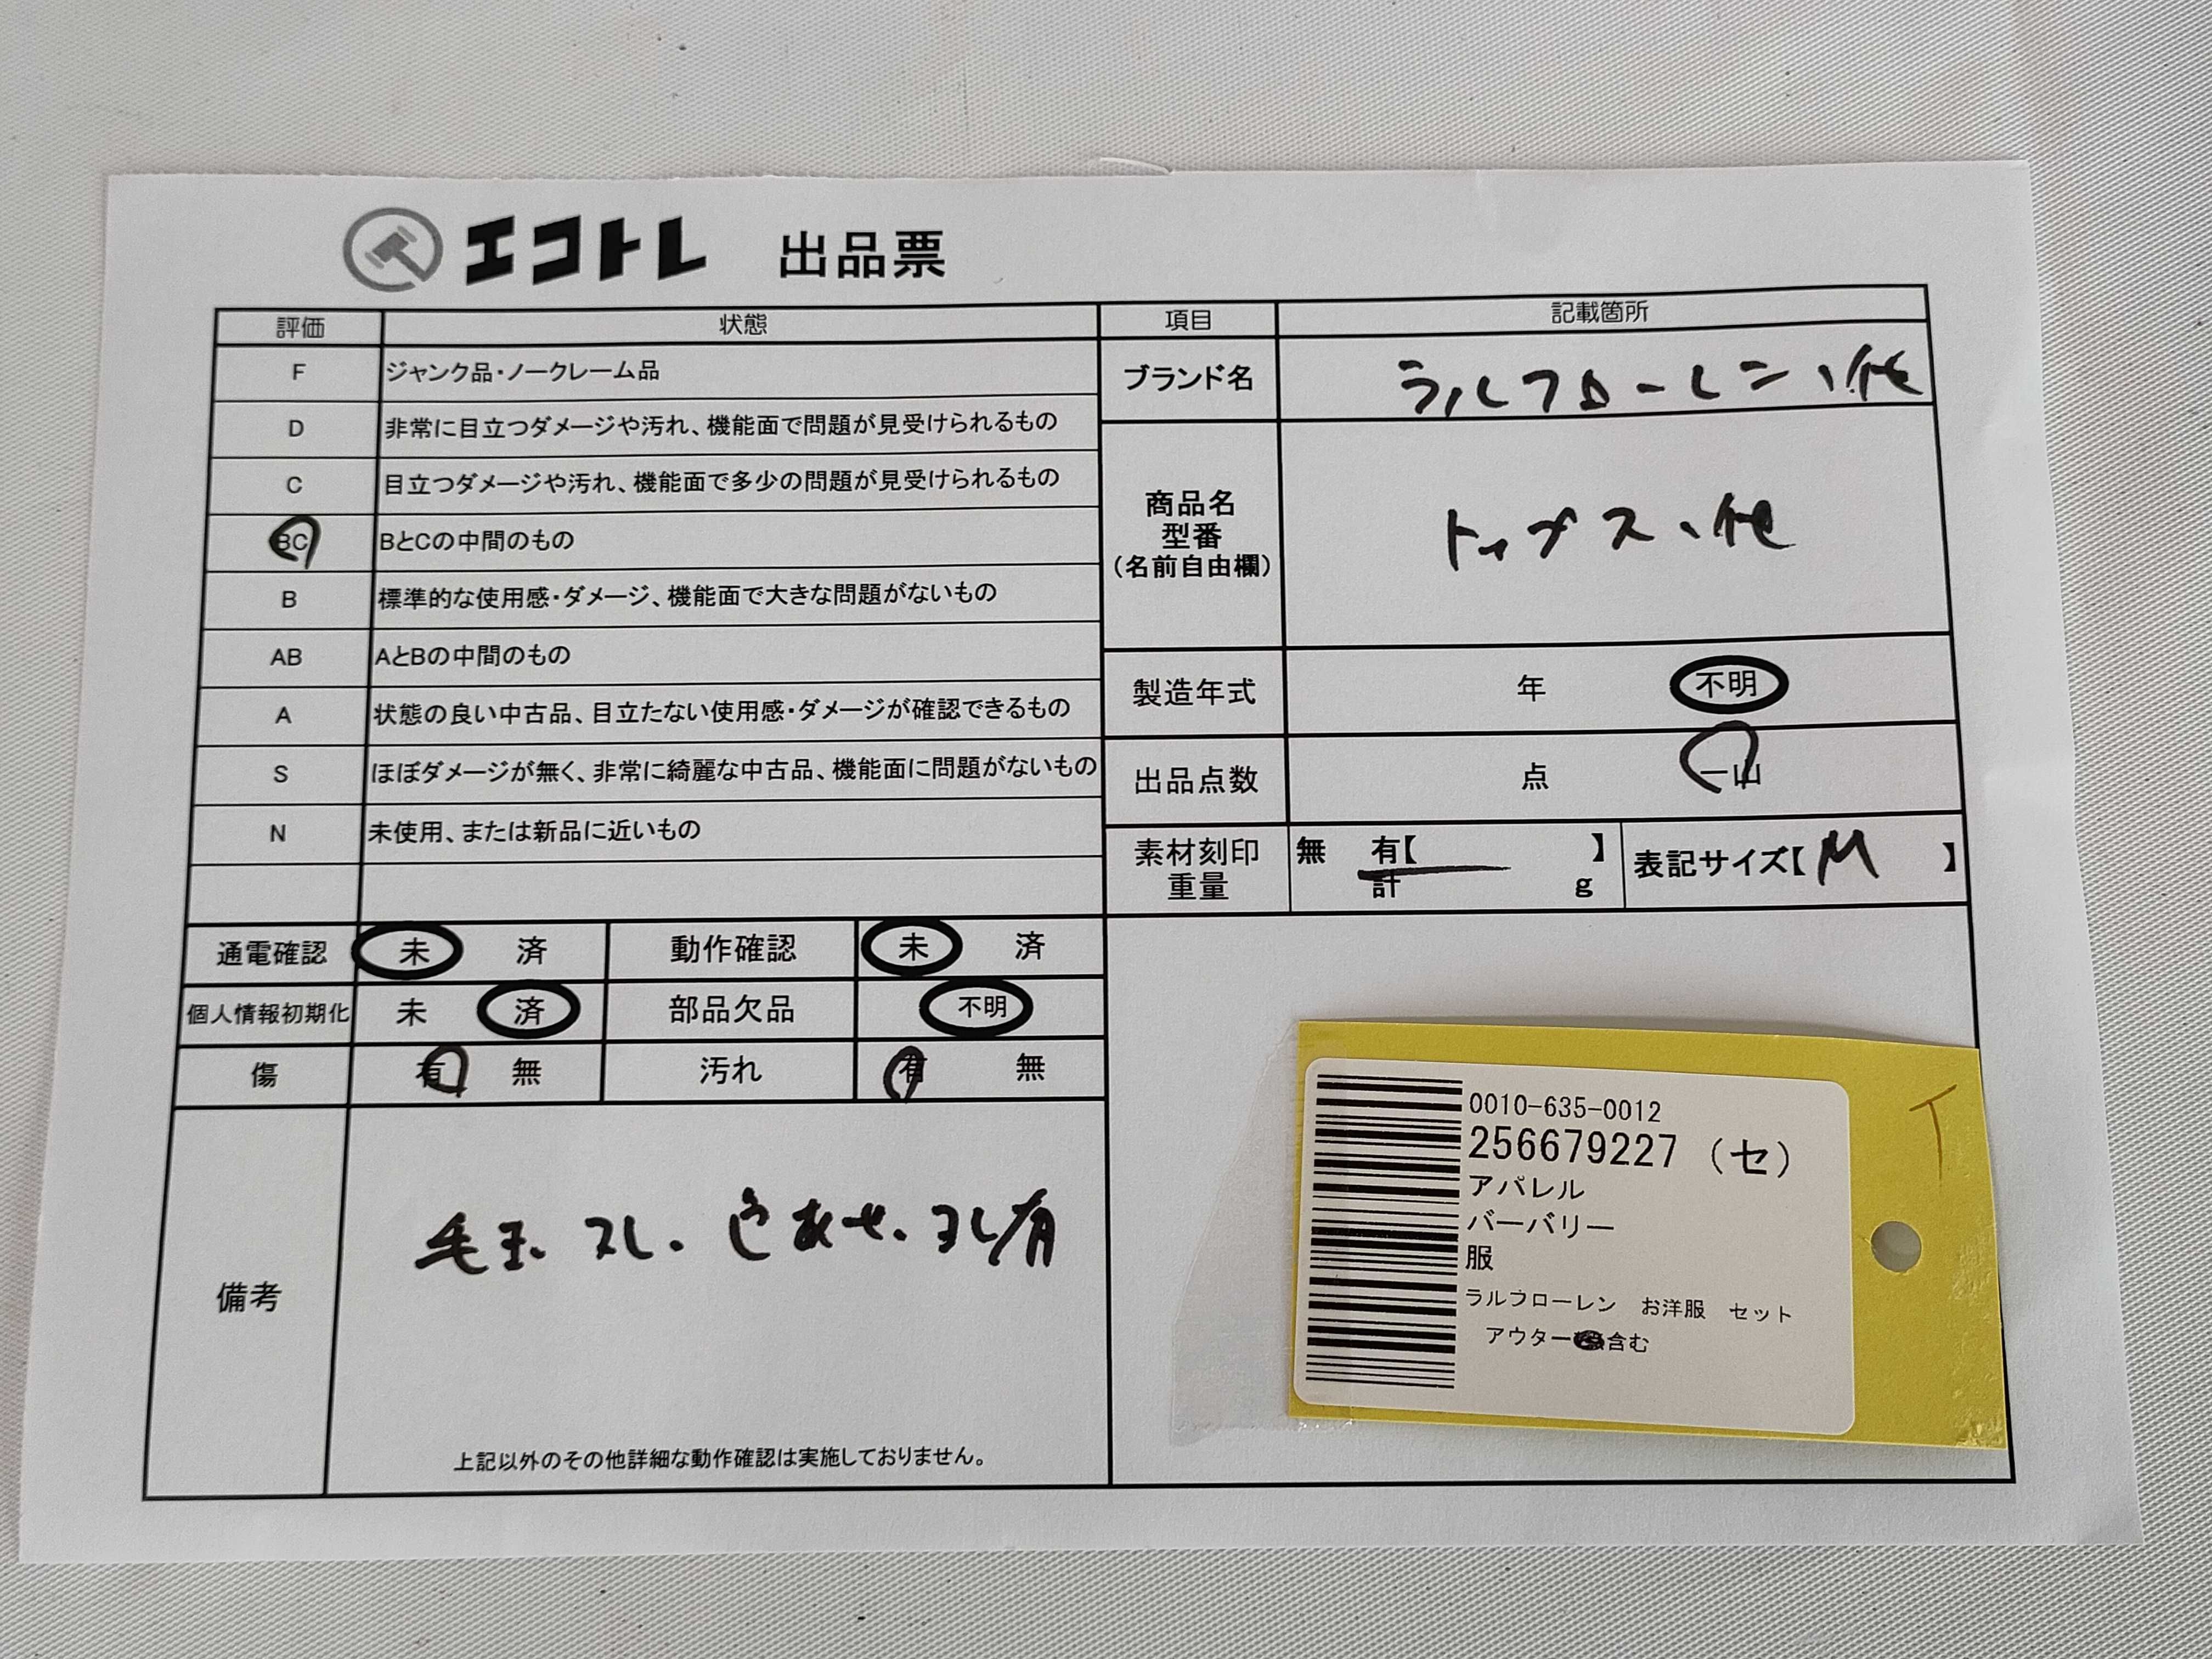 エコトレ 出品票
評価 状態
F ジャンク品・ノークレーム品
D 非常に目立つダメージや汚れ、機能面で問題が見受けられるもの
C 目立つダメージや汚れ、機能面で多少の問題が見受けられるもの
BC BとCの中間のもの
B 標準的な使用感・ダメージ、機能面で大きな問題がないもの
AB AとBの中間のもの
A 状態の良い中古品、目立たない使用感・ダメージが確認できるもの
S ほぼダメージが無く、非常に綺麗な中古品、機能面に問題がないもの
N 未使用、または新品に近いもの
通電確認 未 済 動作確認 未 済
個人情報初期化 未 済 部品欠品 不明
傷 有 無 汚れ 有 無
備考
毛玉、スレ、色あせ、ヨレ有
上記以外のその他詳細な動作確認は実施しておりません。
項目 記載箇所
ブランド名 ラルフローレン、他
商品名
型番
(名前自由欄)
トップス、他
製造年式 年 不明
出品点数 点 一山
素材刻印
重量
無 有【 】
計 g
表記サイズ【 M 】
0010-635-0012
256679227 (セ)
アパレル
バーバリー
服
ラルフローレン お洋服 セット
アウター含む
T